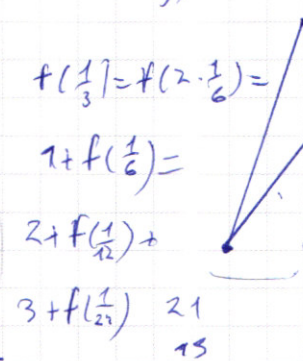 f(1/3) = f(2 · 1/6) =
1 + f(1/6) =
2 + f(1/12) +
3 + f(1/24) 21
15